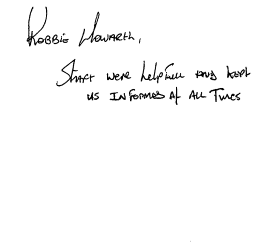 Robbie Howarth,
Staff were helpfull and kept
us informed at all times